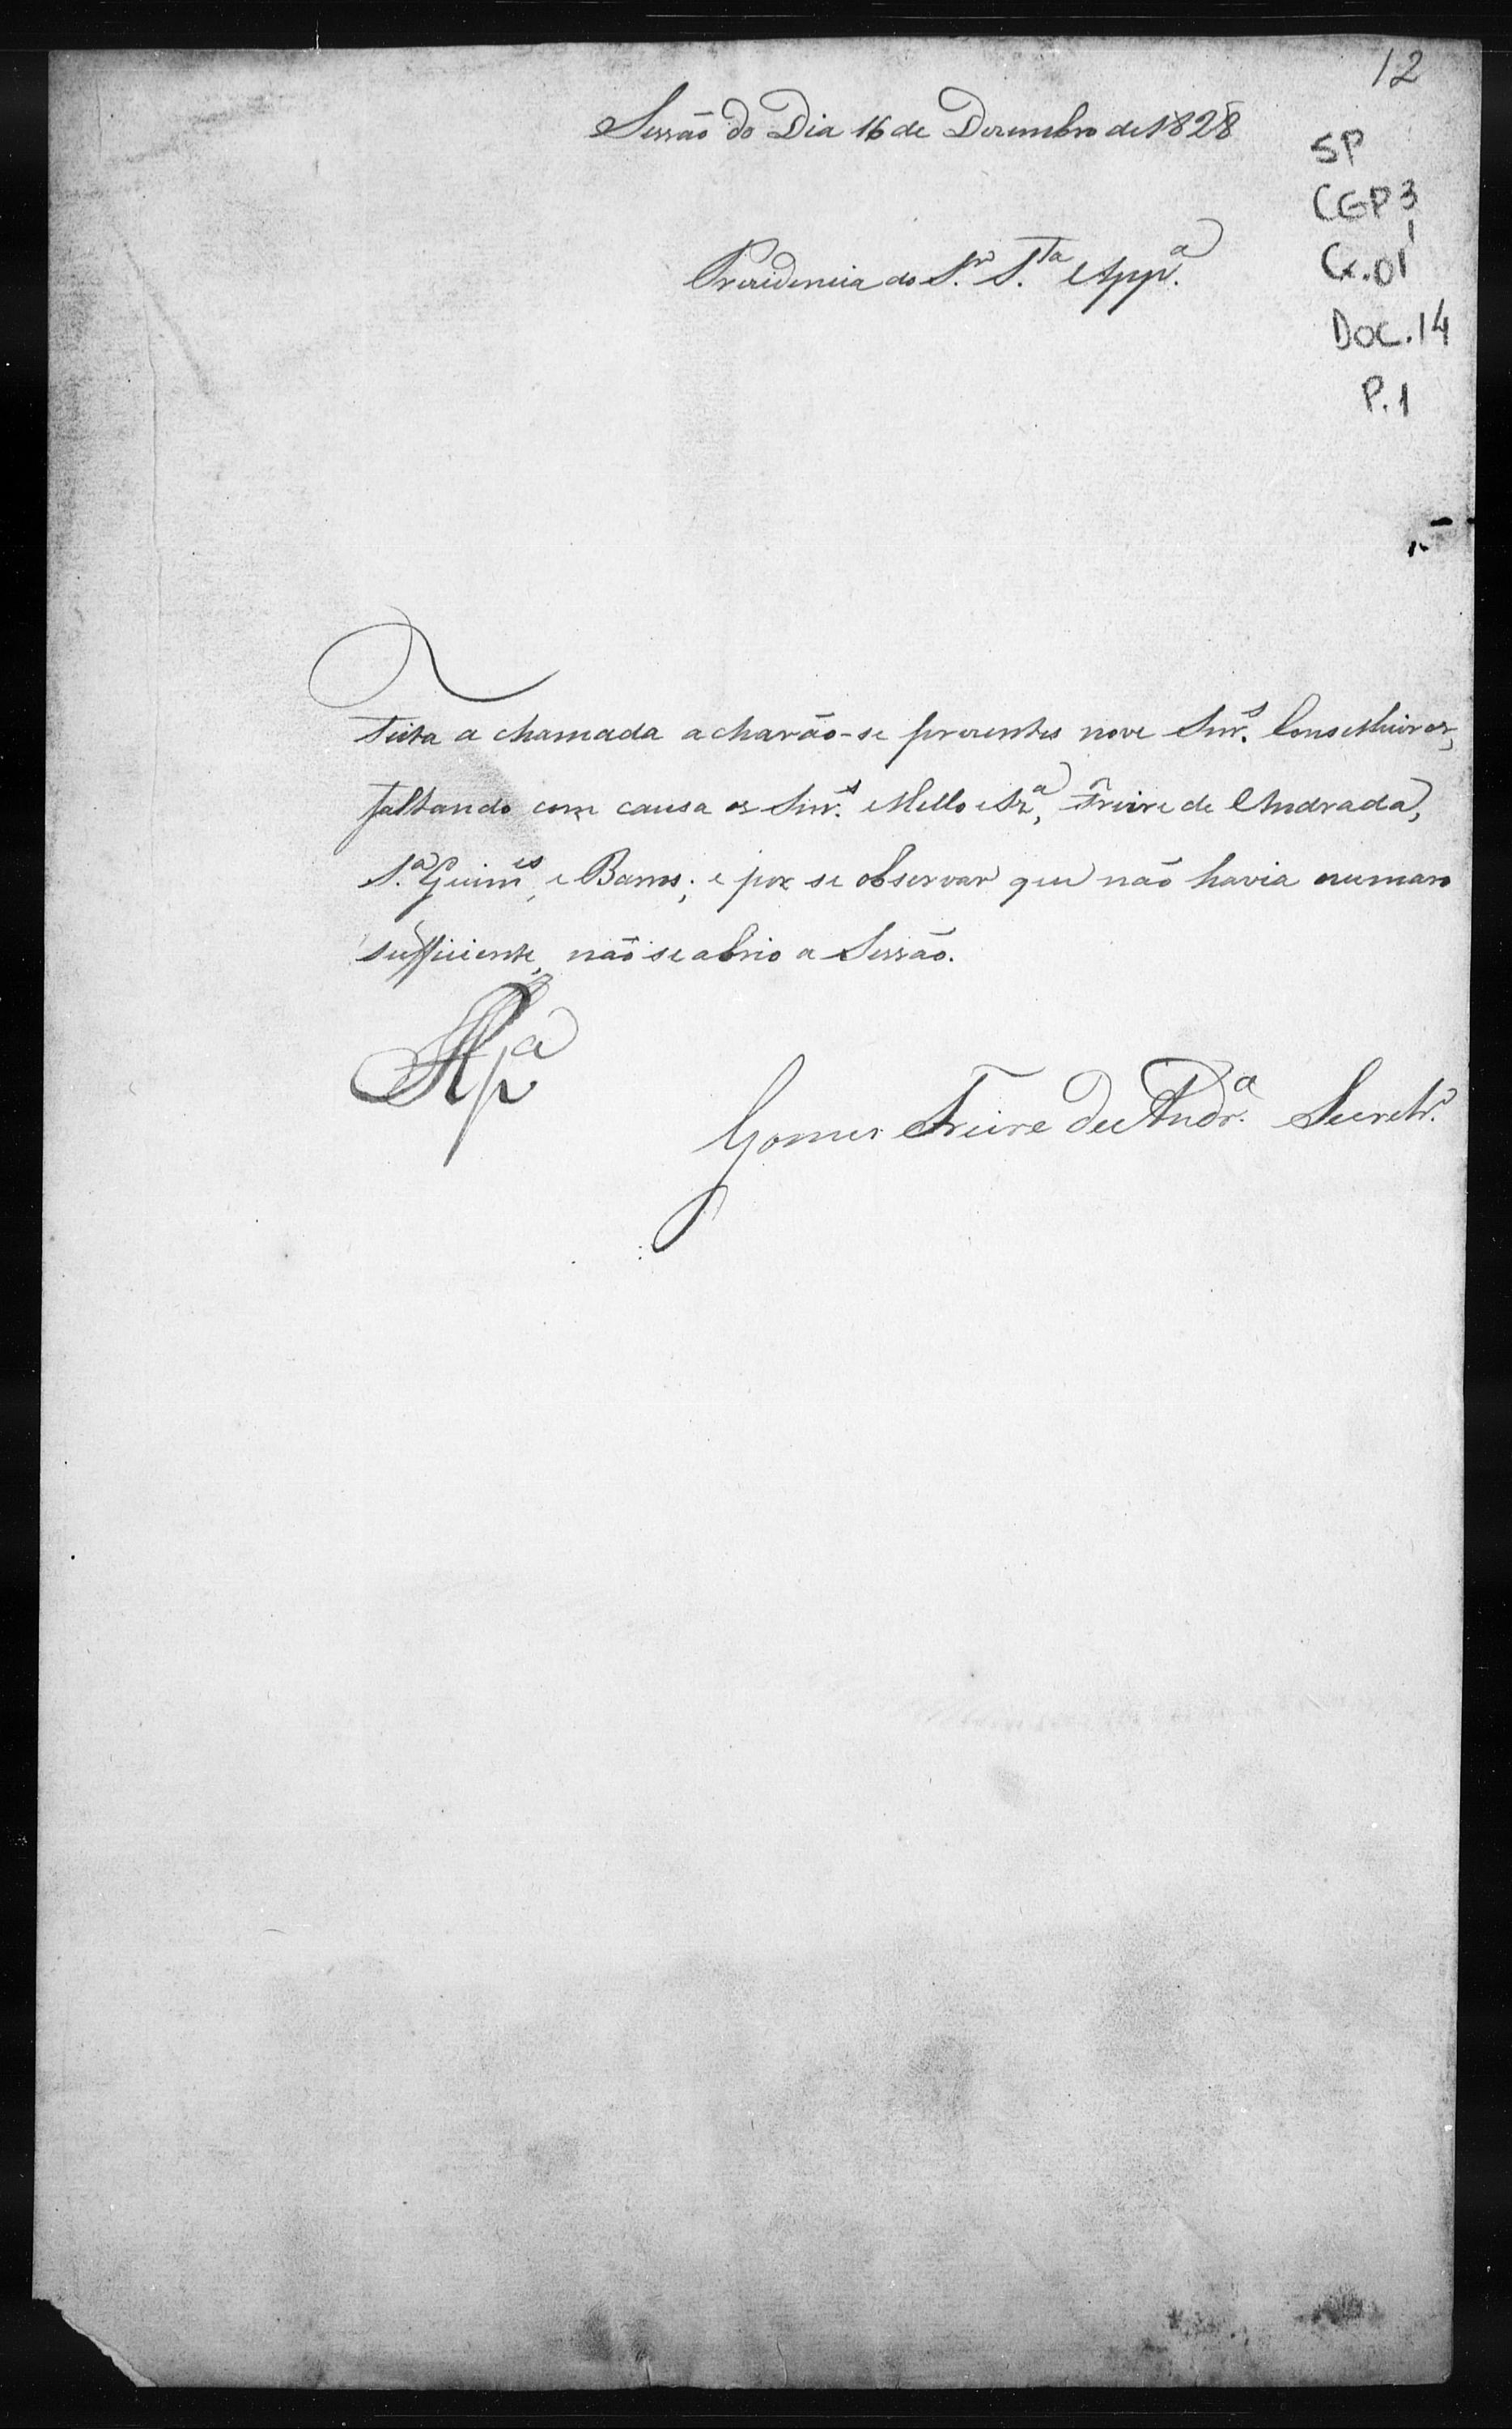 12
Sessão do Dia 16 de Dezembro de 1828
SP
CGP 3
1
Cx.01
Presidencia do Sr. S.ta App.a
Doc. 14
P. 1
Feita a chamada acharão-se presentes nove Snrs. Conselheiros,
faltando com causa os Snrs. Mello e Sza, Freire de Andrada,
S.a Guimes, e Barros; e por se observar que não havia numero
sufficiente, não se abrio a Sessão.
Gomes Freire de Andr.a Secretr.o